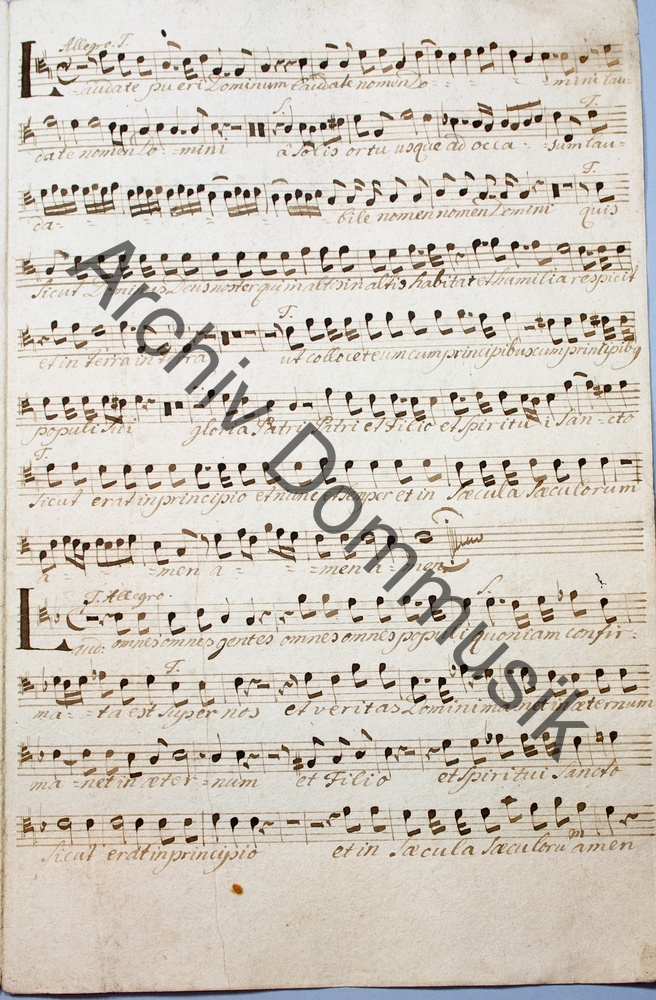 Allegro. T.
Laudate pueri Dominum laudate nomen Do - - - mini lau-
S. T.
date nomen Do - mini à Solis ortu usque ad occa - - sum lau-
T.
da - - bile nomen nomen Domini quis
Sicut Dominus Deus noster qui in altis in altis habitat et humilia respicit
T.
et in terra in terra ut collocet eum cum principibus cum principibus
populi sui gloria Patri Patri et Filio et Spiritui San - cto
T.
Sicut erat in principio et nunc et semper et in Sæcula Sæculorum
a - - - men a - - - men a - men
T. Allegro. S.
Laud: omnes omnes gentes omnes omnes populi quoniam confir -
T.
ma - - ta est super nos et veritas Domini manet in æternum
ma - net in æter - num et Filio et Spiritui Sancto
Sicut erat in principio et in Sæcula Sæculorum amen
Archiv Dommusik